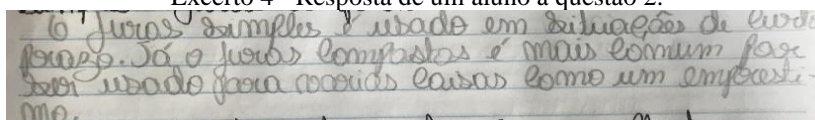 Excerto 4 - Resposta de um aluno à questão 2.
O juros simples é usado em situações de curto
prazo. Já o juros compostos é mais comum
ser usado para causas como um empresti-
mo.